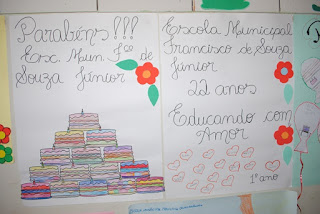 Parabéns!!!
Esc. Mun. Fco de
Souza Júnior
Escola Municipal
Francisco de Souza
Júnior
22 anos
Educando com
Amor
1º ano